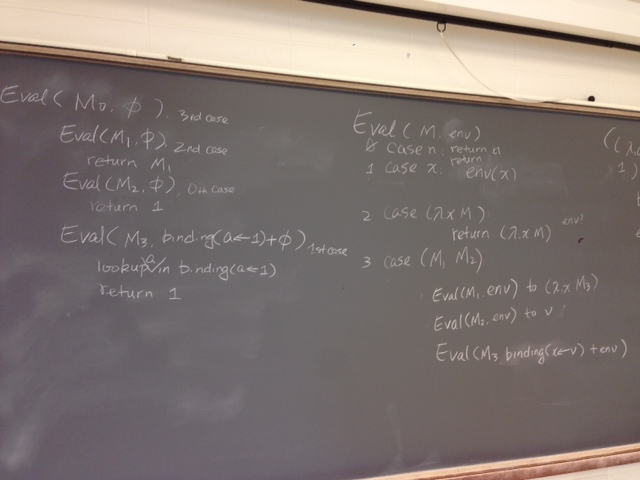 Eval( M0, ϕ), 3rd case
Eval(M1, ϕ), 2nd case
return M1
Eval(M2, ϕ), 0th case
return 1
Eval( M3, binding(a←1)+ϕ), 1st case
lookup a in binding(a←1)
return 1
Eval( M, env)
0 case n: return n
1 case x: return env(x)
2 case (λx M)
return (λ.x M) env?
3 case (M, M2)
Eval(M1, env) to (λ.x M3)
Eval(M2, env) to v
Eval(M3, binding(x←v) + env)
((λ
1)